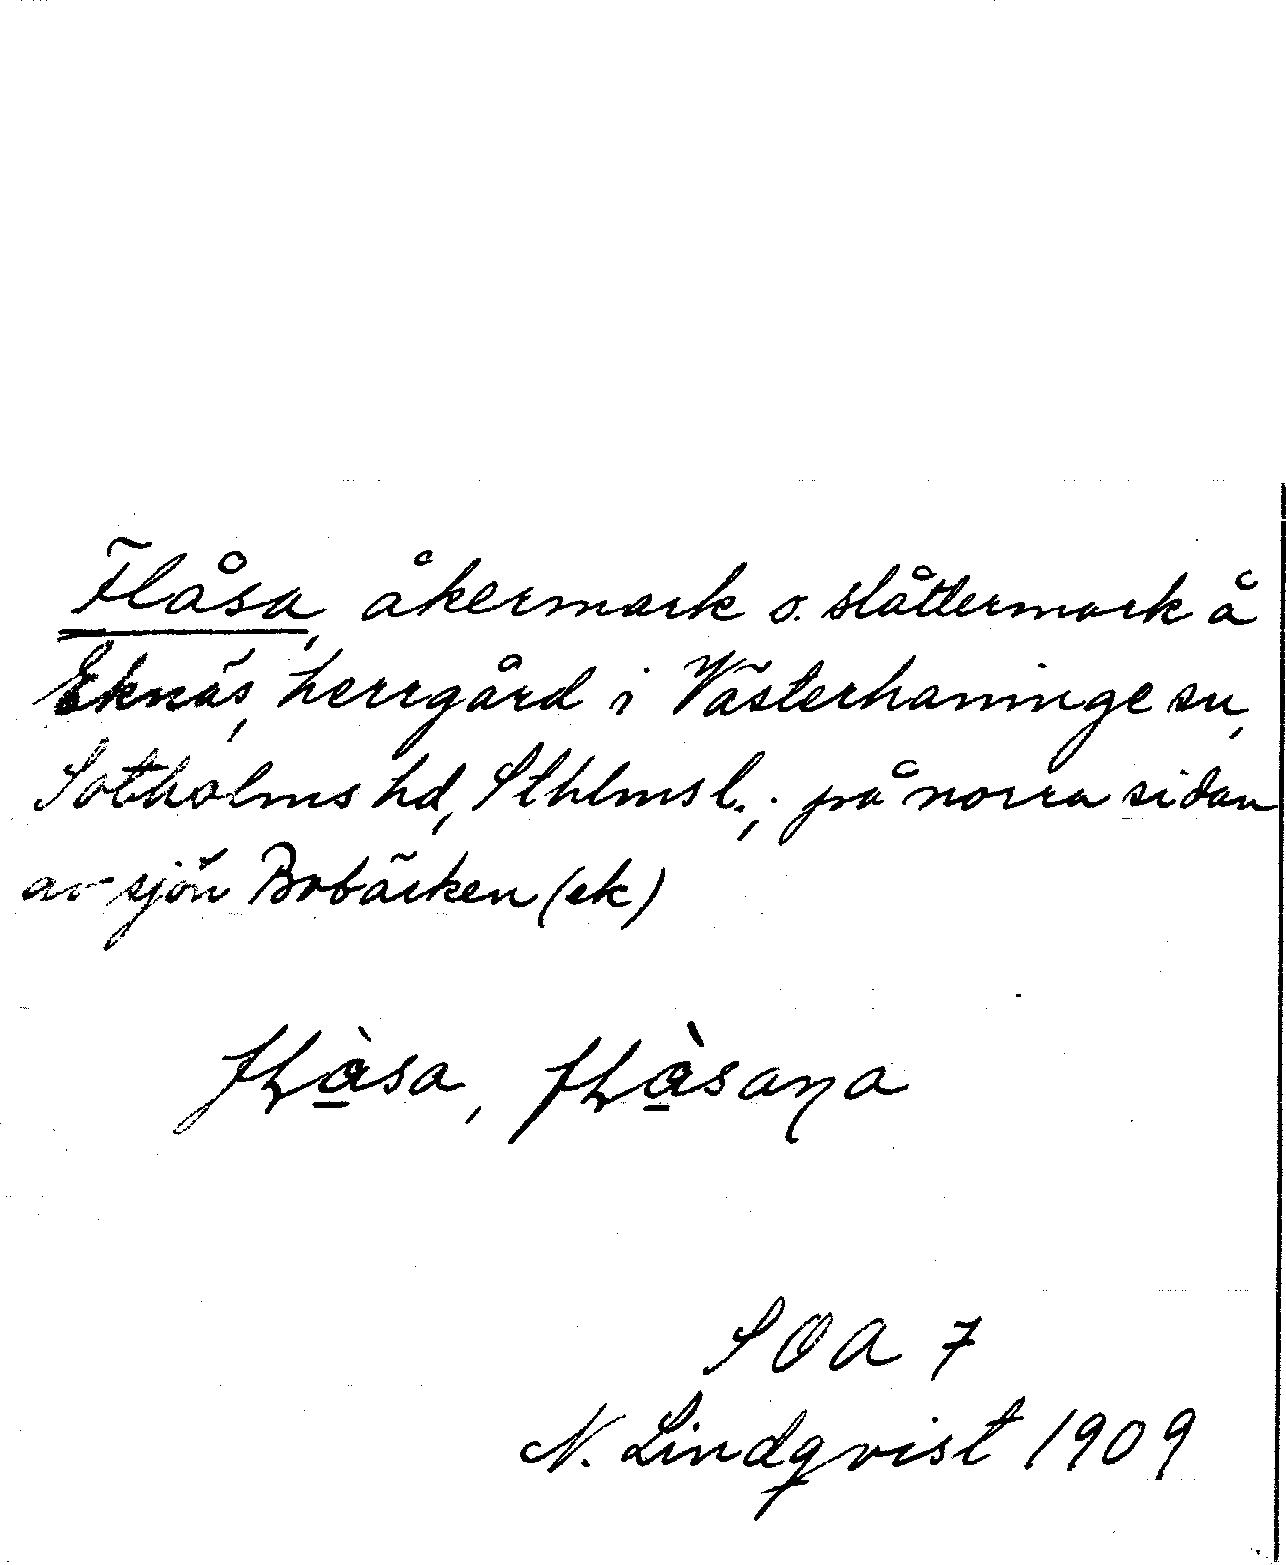 Flåsa, åkermark o. slåttermark å
Eknäs, herrgård i Västerhaninge sn,
Sotholms hd, Sthlms l.; på norra sidan
av sjön Bobäcken (ek)
SOA 7
N. Lindqvist 1909